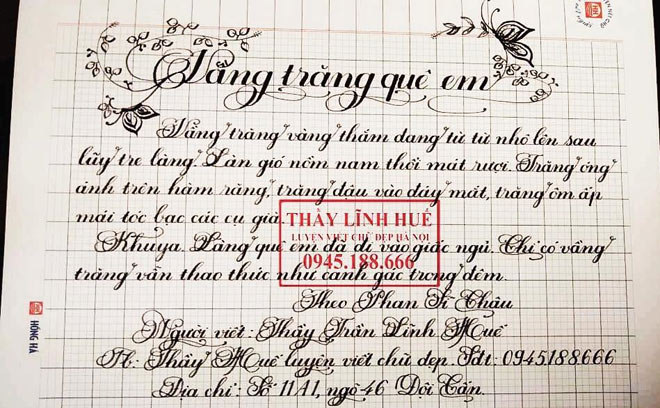 Vầng trăng quê em
Vầng trăng vàng thắm đang từ từ nhô lên sau
lũy tre làng. Làn gió nồm nam thổi mát rượi. Trăng óng
ánh trên hàm răng, trăng đậu vào đáy mắt, trăng ôm ấp
mái tóc bạc các cụ già.
THẦY LĨNH HUẾ
LUYỆN VIẾT CHỮ ĐẸP HÀ NỘI
0945.188.666
Khuya. Làng quê em đã đi vào giấc ngủ. Chỉ có vầng
trăng vẫn thao thức như canh gác trong đêm.
Theo Phan Sĩ Châu
Người viết: Thầy Trần Lĩnh Huế
Thầy Huế luyện viết chữ đẹp. Sđt: 0945.188.666
Địa chỉ: Số 11A1, ngõ 46 Đội Cấn.
HONG HA